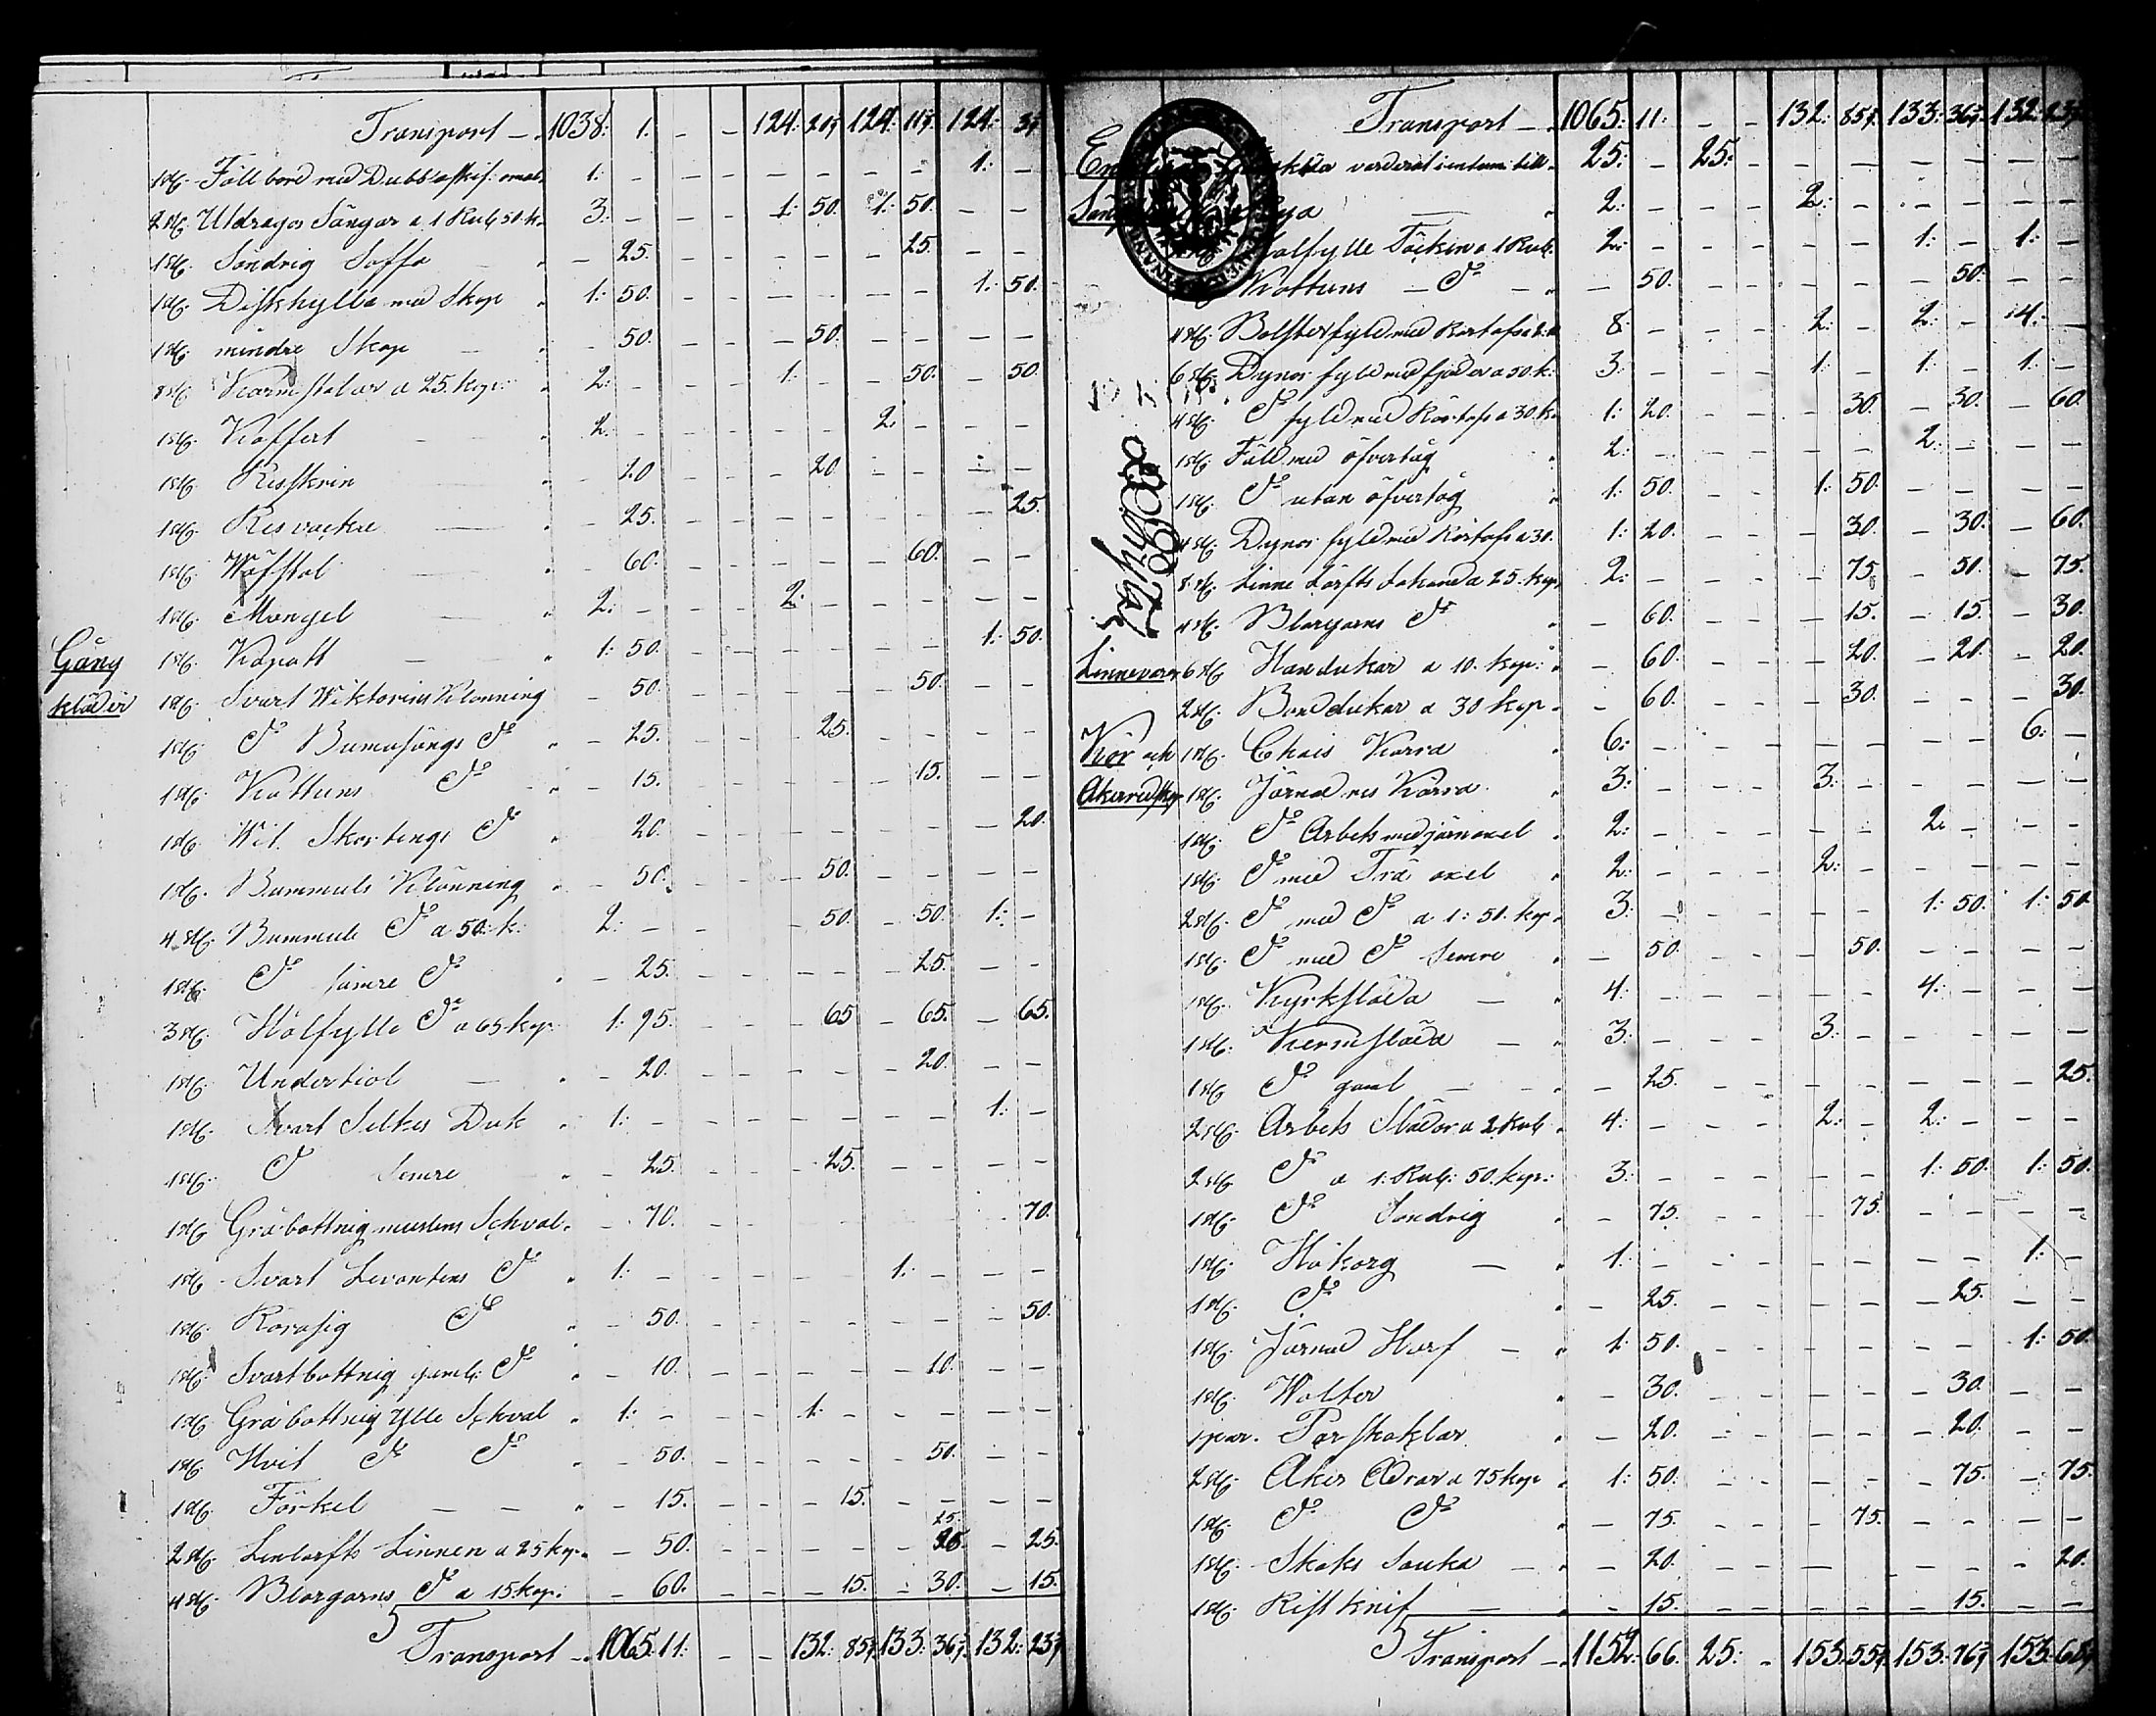 Transport — 1038: 1. — — 124: 20 124: 11 124: 3
1 st. Fäll bord med 1: — — — — — — — 1: —
2 st. Utdrages Sängar a 1 Rub 50 k. 3: — — — 1: 50. 1: 50. — —
1 st. Söndrig Soffa — 25. — — — — — 25. — —
1 st. Diskhylla med Skop 1: 50. — — — — — — 1: 50.
1 st. mindre Skop — 50. — — — 50. — — — —
8 st. Karmstolar a 25. kop: 2: — — — 1: — — 50. — 50
1 st. Koffert 2: — — — — — 2: — — —
1 st. Resskrin — 20 — — — 20 — — — —
1 st. Res väcka — 25. — — — — — — — 25.
1 st. Wäfstol — 60. — — — — — 60. — —
1 st. Mangel 2: — — — 2: — — — — —
Gång 1 st. Kapott 1: 50. — — — — — — 1: 50.
kläder 1 st. Svart Wiktorius Klänning — 50. — — — — — 50. — —
1 st. Do Bumasängs Do — 25. — — — 25. — — — —
1 st. Kattuns Do — 15. — — — — — 15. — —
1 st. Wit. Do — 20. — — — — — — — 20.
1 st. Bummuls Klänning — 50. — — — 50. — — — —
4 st. Bummuls Do a 50: k: 2: — — — — 50. — 50. 1: —
1 st. Do sämre Do — 25. — — — — — 25. — —
3 st. Hälfylle Do a 65 kop 1: 95. — — — 65 — 65. — 65.
1 st. Underkiol — 20. — — — — — 20. — —
1 st. Svart Silkes Duk 1: — — — — — — — 1: —
1 st. Do Semre — 25. — — — 25. — — — —
1 st. Gråbottnig muslins Schval. — 70. — — 70.
1 st. Svart Levantens Do 1: — — — — — 1: — — —
1 st. Korasig Do — 50. — — — — — — — 50.
1 st. Svartbottnig gaml: Do — 10. — — — — — 10. — —
1 st. Gråbottnig Ylle Schval 1: — — — 1. — — — — —
1 st. Hvit Do Do — 50. — — — — — 50. — —
1 st. Förkel — — — 15. — — — 15. — — — —
25.
2 st. Linlärfts Linnen a 25 kop. — 50. — — — — — 25 — 25.
4 st. Blorgarns Do a 15 kop: — 60. — — — 15. — 30. — 15.
Transport — 1065: 11: — — 132: 85 133: 36 132: 23
Transport — 1065: 11: — — 132: 85 133: 36 132: 23
värderat till 25: — 25: — — — — — — —
2: — — — 2: — — — — —
Halfylle Täcken a 1 Rub. 2: — — — — — 1: — 1: —
Kattuns — Do — — 50. — — — — — 50. — —
4 st. Bolster fyld med Rörtofs 8: — — — 2: — 2: — 4: —
6 st. Dynor fyld med fjäder a 50. k: 3: — — — 1: — 1: — 1: —
4 st. Do fyld med Rörtofs a 30. k. 1: 20. — — — 30. — 30. — 60.
1 st. Fäll med öfvertåg 2: — — — — — 2: — — —
1 st. Do utan öfvertåg 1: 50. — — 1: 50. — — — —
4 st. Dynor fyld med Rörtofs a 30. 1: 20. — — — 30. — 30. — 60.
8 st. Linne Lärfts Lakand a 25. kop. 2: — — — — 75. — 50 — 75.
4 st. Blorgarns Do — 60. — — — 15. — 15. — 30.
Linnevaror 6 st. Handukar a 10. kop: — 60. — — — 20. — 20. — 20.
2 st. Borddukar a 30 kop — 60. — — — 30. — — — 30.
Kör och 1 st. Chais Karra 6: — — — — — — — 6: —
Åkerredskap 1 st. Järnad res Kärra 3: — — — 3: — — — — —
1 st. Do Arbets med järnaxel 2: — — — — — 2. — — —
1 st. Do med Trä axel 2: — — — 2: — — — — —
2 st. Do med Do a 1: 50. kop. 3: — — — — — 1: 50. 1: 50
1 st. Do med Do Semre — 50. — — — 50. — — — —
1 st. Kyrkslåda — 4: — — — — — 4: — — —
1 st. Kermslåda — 3: — — — 3: — — — — —
1 st. Do gaml — — 25. — — — — — — — 25.
2 st. Arbets Slädor a 2 Rub 4: — — — 2: — 2: — — —
2 st. Do a 1: Rub: 50. kop: 3: — — — — — 1: 50. 1: 50.
1 st. Do Sondrig — 75. — — — 75. — — — —
1 st. Hökorg — 1: — — — — — — — 1: —
1 st. Do — 25. — — — — — 25. — —
1 st. Järnad Harf — 1: 50. — — — — — — 1: 50.
1 st. Wolter — 30. — — — — — 30. — —
1 par. Parskaklar — 20. — — — — — 20. — —
2 st. Åker Ådrar a 75 kop 1: 50. — — — — — 75. — 75.
1 st. Do Do — 75. — — — 75. — — — —
1 st. Skaks Souka — — 20. — — — — — — — 20.
1 st. Rist knif — 15. — — — — — 15. — —
Transport — 1152: 66. 25: — 153: 55 153: 76 153: 68